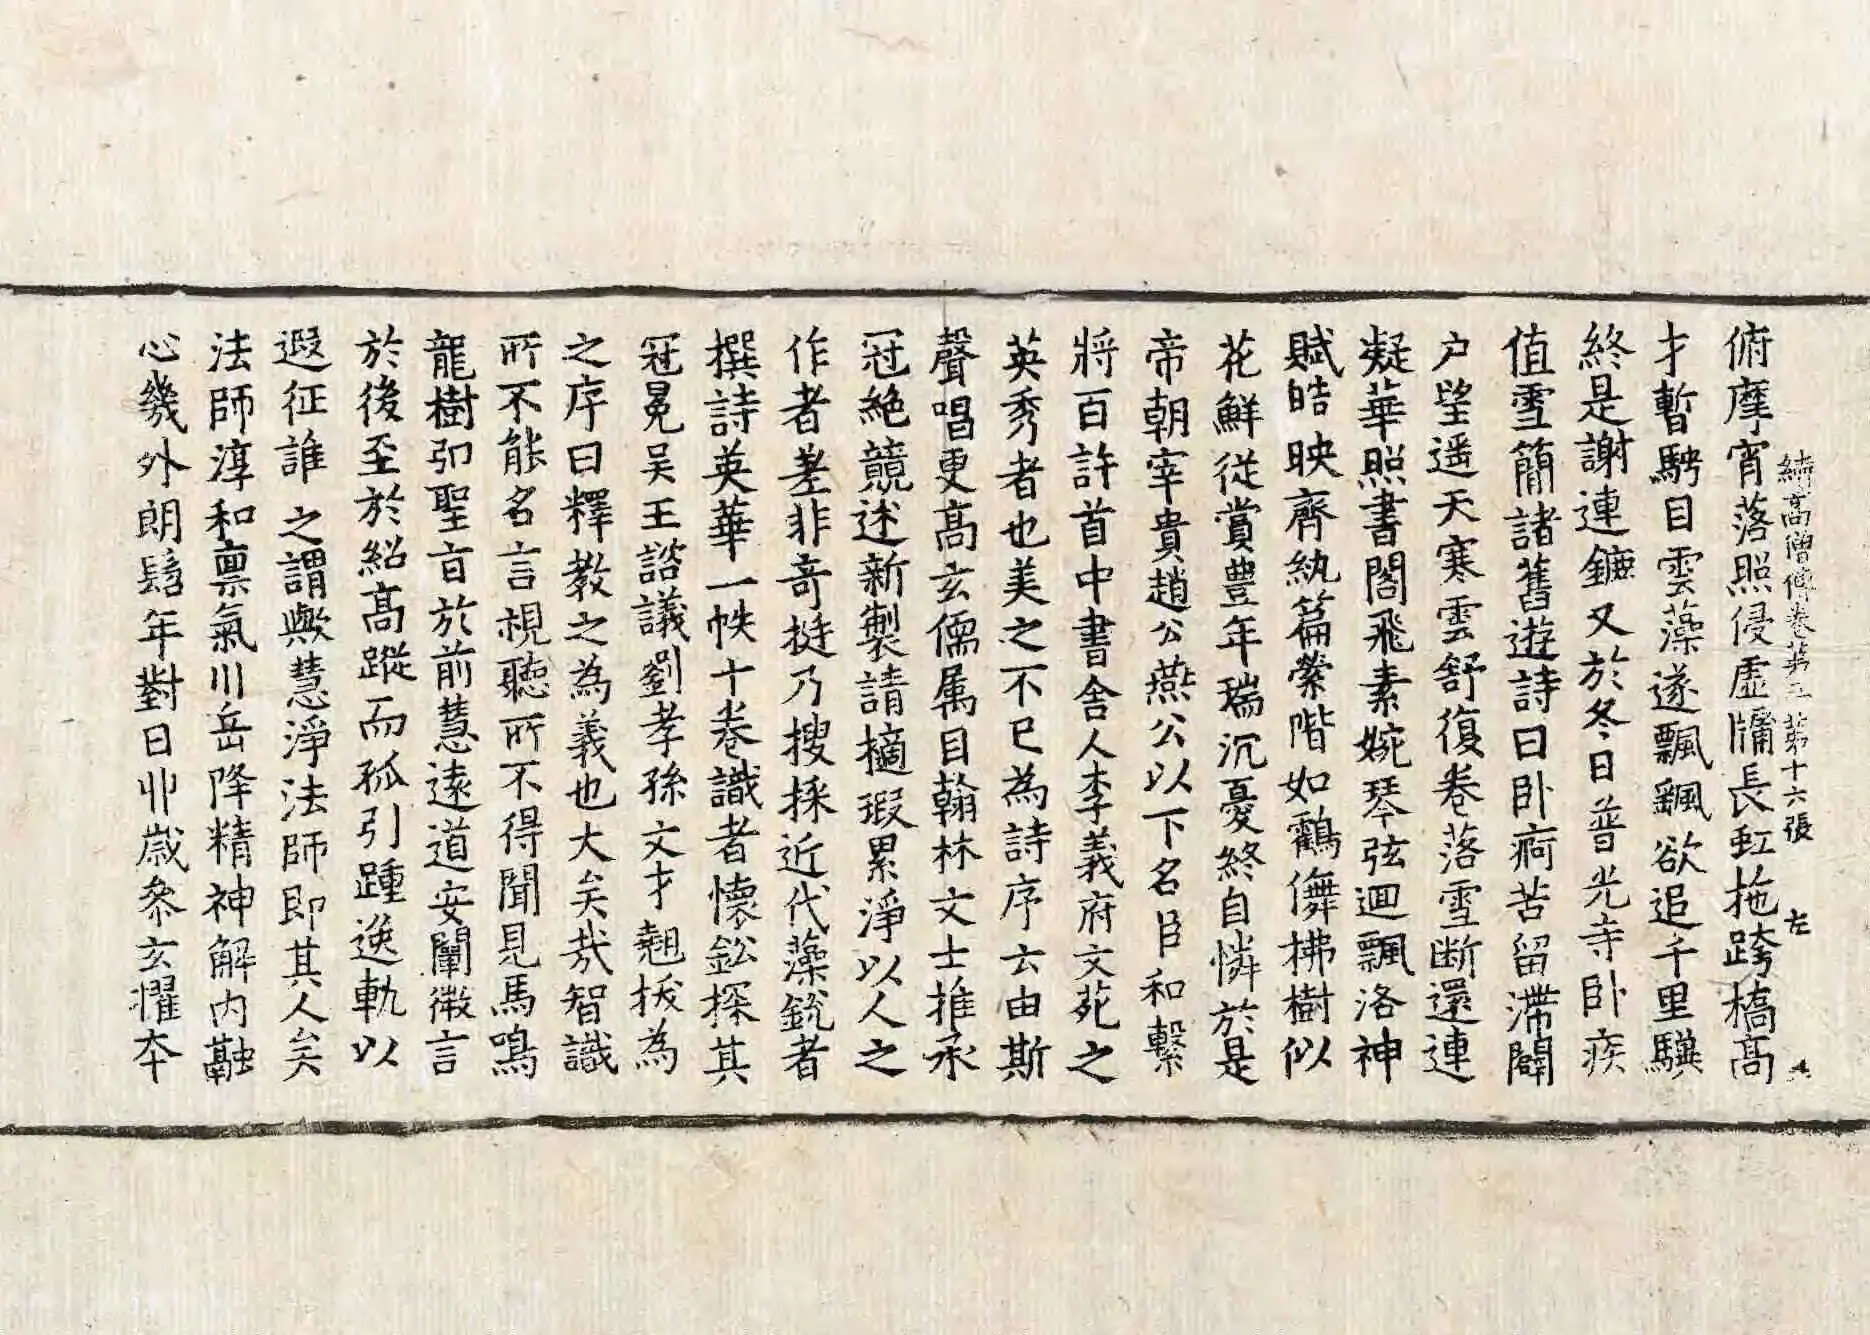 續高僧傳卷第三 第十六張 左
俯摩宵落照侵虛牖長虹拖跨橋高
才暫騁目雲藻遂飄颻欲追千里驥
終是謝連鑣又於冬日普光寺卧疾
值雪簡諸舊遊詩曰卧痾苦留滯闢
户望遥天寒雲舒復卷落雪断還連
凝華照書閣飛素婉琴弦迴飄洛神
賦皓映齊紈篇縈階如鶴儛拂樹似
花鮮從賞豊年瑞沉憂終自憐於是
帝朝宰貴趙公燕公以下名臣和繫
將百許首中書舍人李義府文苑之
英秀者也美之不已為詩序云由斯
聲唱更高玄儒属目翰林文士推承
冠絶競述新製請擿瑕累淨以人之
作者差非奇挺乃搜採近代藻銳者
撰詩英華一帙十卷識者懷鈆探其
冠冕吴王諮議劉孝孫文才翹拔為
之序曰釋教之為義也大矣哉智識
所不能名言視聽所不得聞見馬鳴
龍樹卯聖旨於前慧遠道安闡徵言
於後至於紹高蹤而孤引踵逸軌以
遐征誰之謂歟慧淨法師即其人矣
法師淳和禀氣川岳降精神解内融
心幾外朗髫年對日丱嵗叅玄擢本